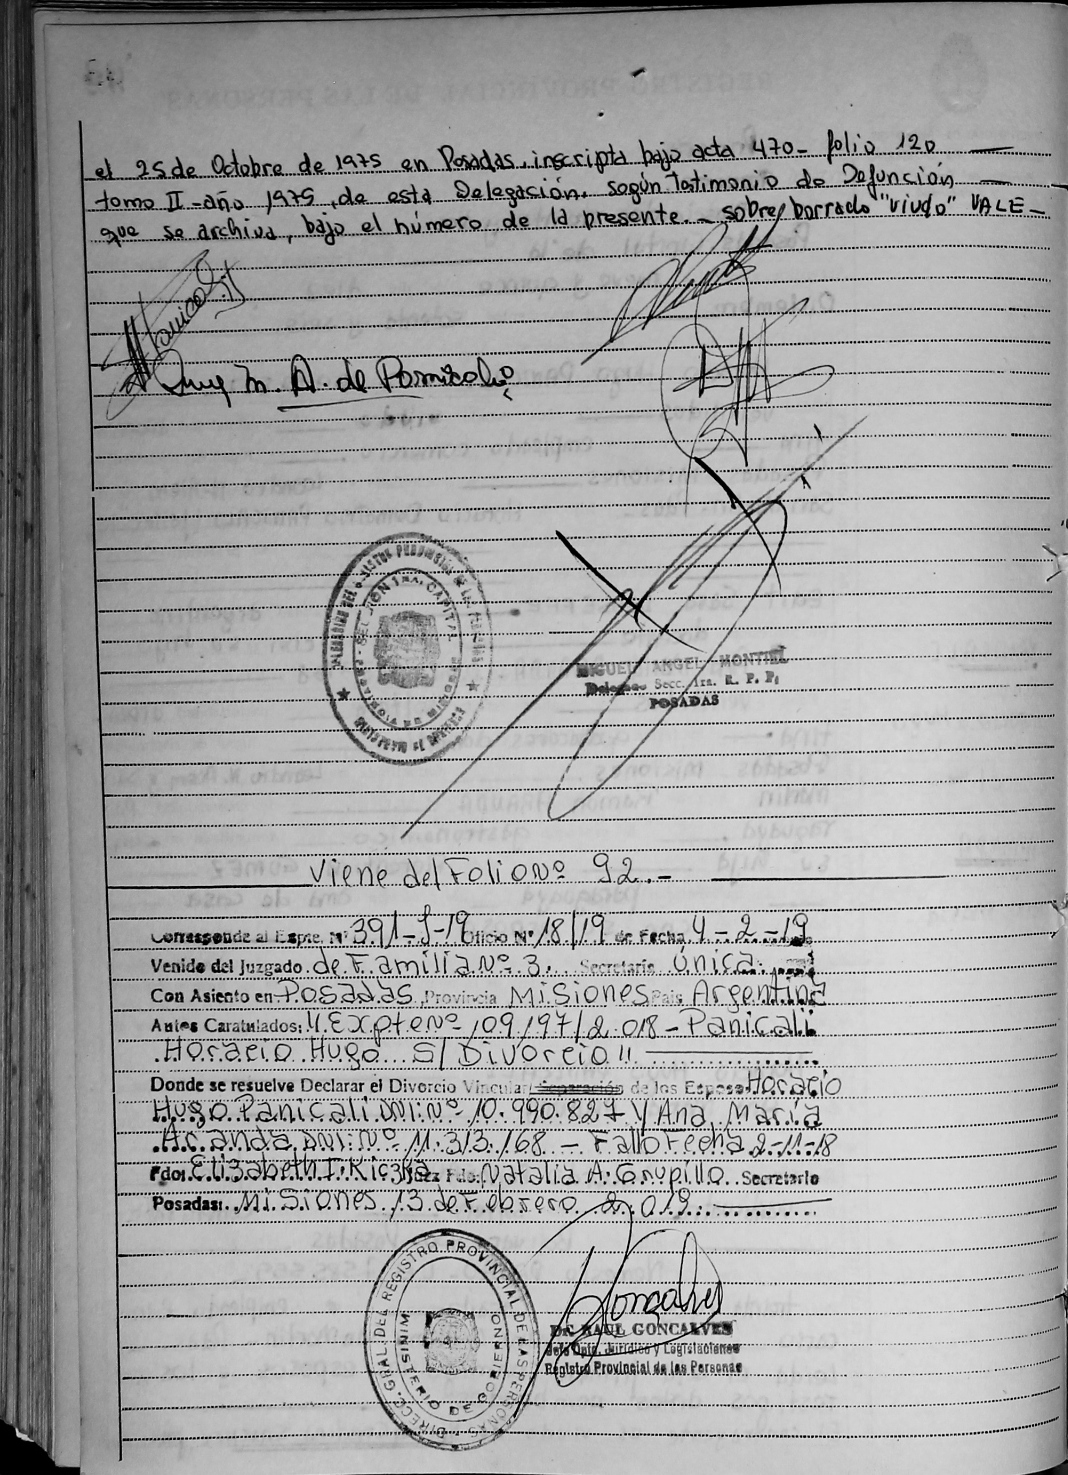 el 25 de Octubre de 1975 en Posadas, inscripta bajo acta 470- folio 120
tomo II-año 1975, de esta Delegación, según Testimonio de Defunción
que se archiva, bajo el número de la presente.- sobre/borrado "viudo" VALE-
m. A. de
SECCION 1ra. CAPITAL
MIGUEL ANGEL MONTIEL
Delegado Secc. 1ra. R. P. P.
POSADAS
Viene del Folio Nº 92.-
Corresponde al Expte. Nº 391-J-19 Oficio Nº 18/19 de Fecha 4-2-19
Venido del Juzgado de Familia Nº 3. Secretaria Única.
Con Asiento en Posadas, Provincia Misiones País Argentina
Autos Caratulados: "Expte nº 109197/2.018- Panicali
Horacio Hugo S/Divorcio"
Donde se resuelve Declarar el Divorcio Vincular/Separación de los Esposos Horacio
Hugo Panicali DNI: Nº 10.990.827 y Ana María
Aranda DNI: Nº 11.313.168 - Fallo Fecha 2-11-18
Fdo: Elizabeth I. Kiczka Juez Fdo: Natalia A. Grupillo Secretario
Posadas: Misiones 13 de Febrero 2.019.
DIRECC. GRAL. DEL REGISTRO PROVINCIAL DE LAS PERSONAS
MINISTERIO DE GOBIERNO
Dr. RAUL GONCALVES
Jefe Dpto. Jurídico y Legislaciones
Registro Provincial de las Personas